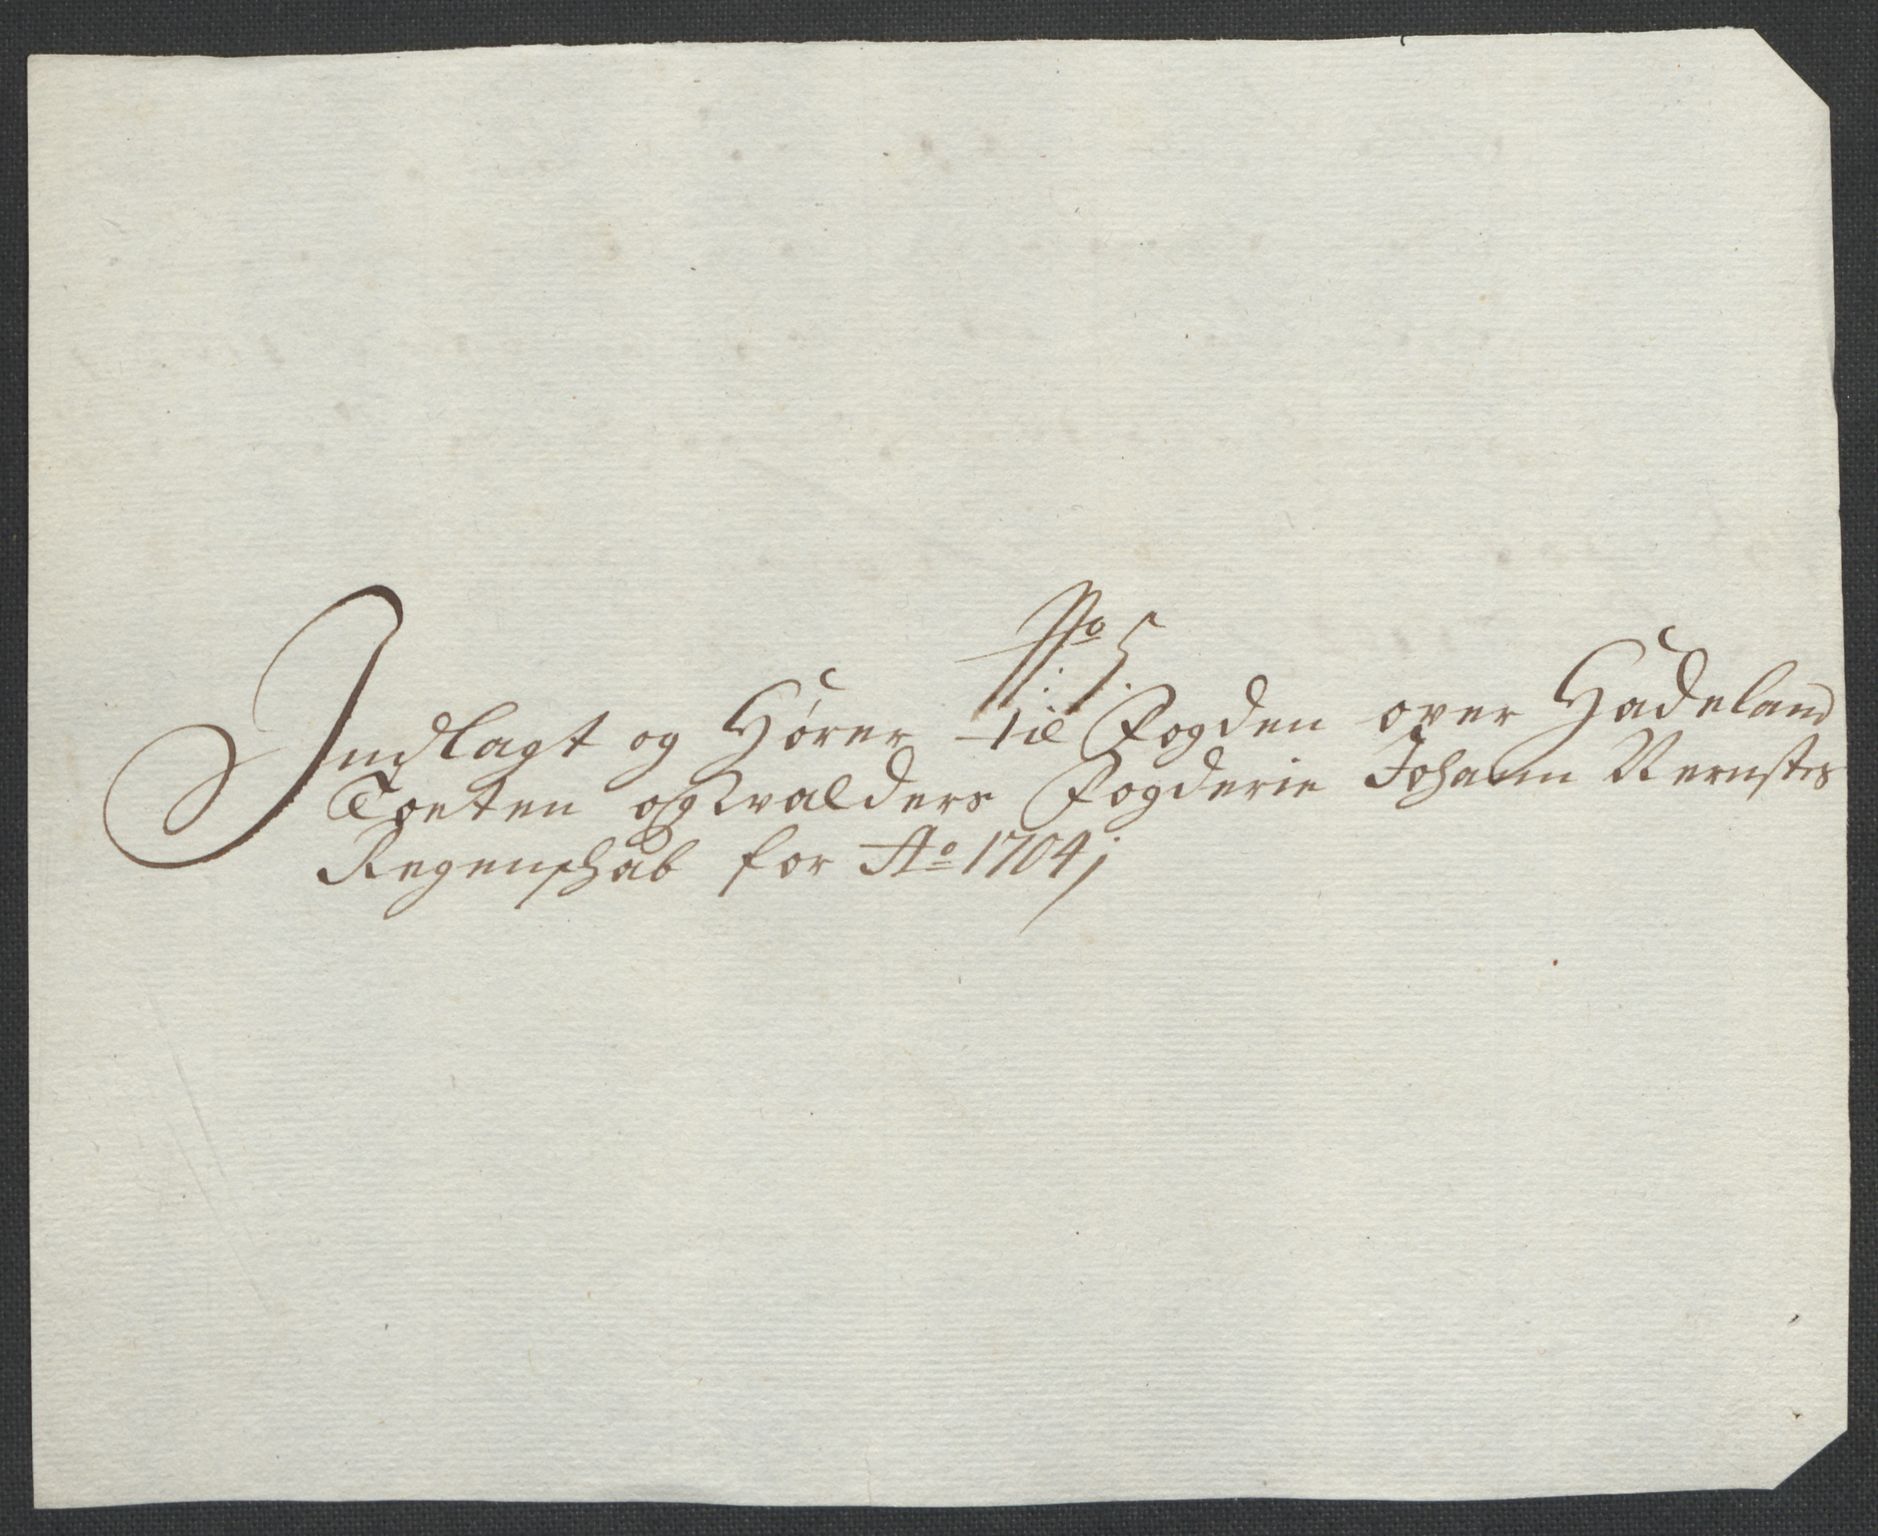 No 5.
Indlagt og Hører til Fogden over Hadeland
Toeten og Valders Fogderie Johann Rernstes
Regenschab for Ao 1704;